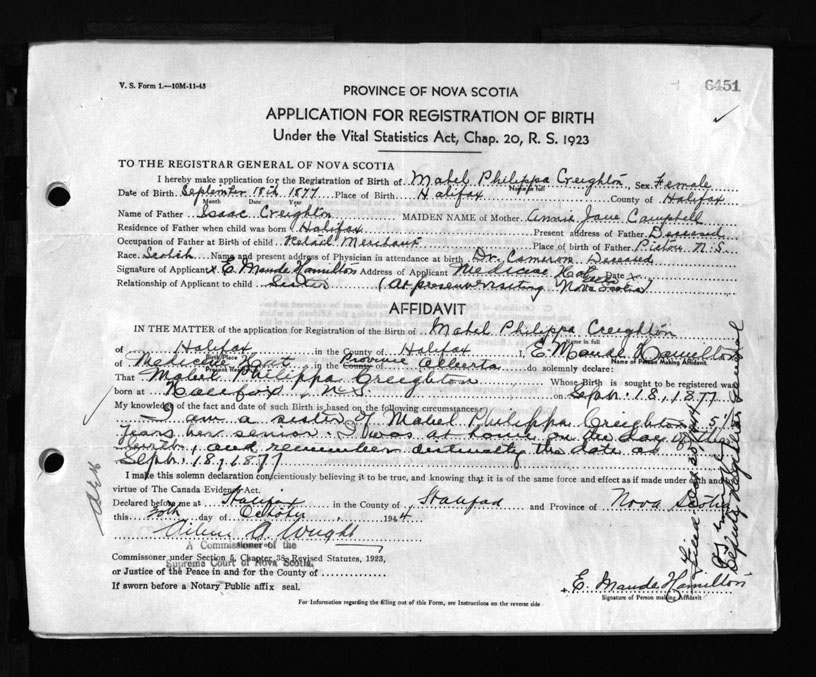 V. S. Form 1.—10M-11-43
6451
PROVINCE OF NOVA SCOTIA
APPLICATION FOR REGISTRATION OF BIRTH
Under the Vital Statistics Act, Chap. 20, R. S. 1923
TO THE REGISTRAR GENERAL OF NOVA SCOTIA
I hereby make application for the Registration of Birth of Mabel Philippa Creighton, Sex Female
Name in full
Date of Birth September 18th 1877 Place of Birth Halifax County of Halifax
Month Date Year
Name of Father Isaac Creighton MAIDEN NAME of Mother Annie Jane Campbell
Residence of Father when child was born Halifax Present address of Father Deceased
Occupation of Father at Birth of child Retail Merchant Place of birth of Father Pictou N.S.
Race Scotish Name and present address of Physician in attendance at birth Dr. Cameron Deceased
Signature of Applicant x E. Maude Hamilton Address of Applicant Medicine Hat Date
Relationship of Applicant to child Sister (At present visiting Nova Scotia)
AFFIDAVIT
IN THE MATTER of the application for Registration of the Birth of Mabel Philippa Creighton
Name in full
of Halifax in the County of Halifax I, E. Maude Hamilton
Birth Place Name of Person Making Affidavit
of Medicine Hat in the County of Province Alberta do solemnly declare:
Present
That Mabel Philippa Creighton Whose Birth is sought to be registered was
born at Halifax, N.S. on Sept. 18, 1877
My knowledge of the fact and date of such Birth is based on the following circumstances
I am a sister of Mabel Philippa Creighton, 5½
years her senior. I was at home on the day of the
birth, and remember distinctly the date as
Sept. 18, 1877
I make this solemn declaration conscientiously believing it to be true, and knowing that it is of the same force and effect as if made under oath and
virtue of The Canada Evidence Act.
Declared before me at Halifax in the County of Halifax and Province of Nova Scotia
this 20th day of October, 1944
Wright
A Commissioner of the
Commissioner under Section 5, Chapter 38, Revised Statutes, 1923,
Supreme Court of Nova Scotia
or Justice of the Peace in and for the County of
If sworn before a Notary Public affix seal.
+ E. Maude Hamilton
Signature of Person making Affidavit
For Information regarding the filling out of this Form, see Instructions on the reverse side
Deputy Registrar General